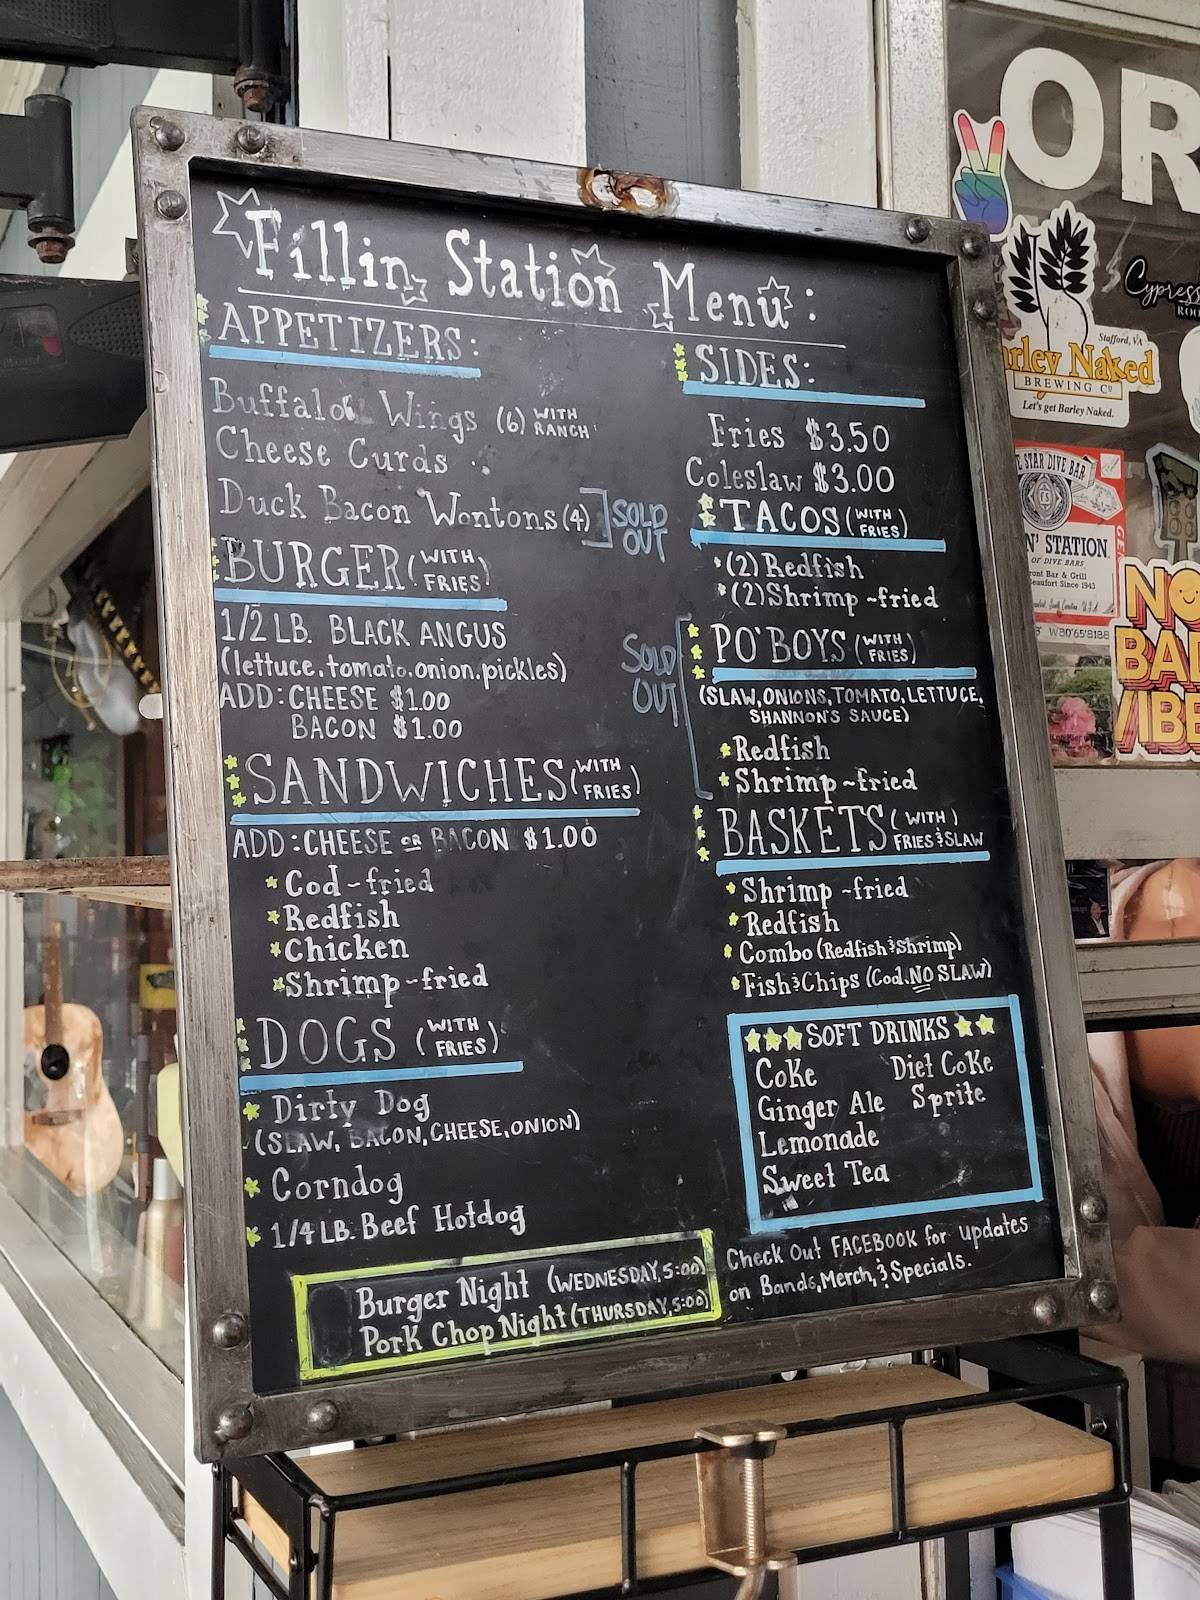 Fillin Station Menu:
APPETIZERS:
Buffalo Wings (6) WITH RANCH
Cheese Curds
Duck Bacon Wontons (4) SOLD OUT
BURGER (WITH FRIES)
1/2 LB. BLACK ANGUS
(lettuce, tomato, onion, pickles)
ADD: CHEESE $1.00
BACON $1.00
SANDWICHES (WITH FRIES)
ADD: CHEESE OR BACON $1.00
Cod-fried
Redfish
Chicken
Shrimp-fried
DOGS (WITH FRIES)
Dirty Dog
(SLAW, BACON, CHEESE, ONION)
Corndog
1/4 LB. Beef Hotdog
Burger Night (WEDNESDAY, 5:00)
Pork Chop Night (THURSDAY, 5:00)
SIDES:
Fries $3.50
Coleslaw $3.00
TACOS (WITH FRIES)
(2) Redfish
(2) Shrimp-fried
SOLD OUT
PO'BOYS (WITH FRIES)
(SLAW, ONIONS, TOMATO, LETTUCE,
SHANNON'S SAUCE)
Redfish
Shrimp-fried
BASKETS (WITH FRIES & SLAW)
Shrimp-fried
Redfish
Combo (Redfish & Shrimp)
Fish & Chips (Cod. NO SLAW)
SOFT DRINKS
Coke Diet Coke
Ginger Ale Sprite
Lemonade
Sweet Tea
Check Out FACEBOOK for updates
on Bands, Merch, & Specials.
OR
Cypress
Stafford, VA
Barley Naked
BREWING Co
Let's get Barley Naked.
STAR DIVE BAR
N' STATION
OF DIVE BARS
Front Bar & Grill
Beaufort Since 1943
W80°65'8188
NO
BAD
VIBE